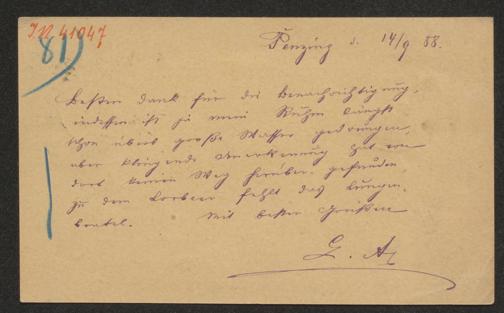 IN 41047
81)
Penzing d. 14/9 88.
Besten Dank für die Benachrichtigung,
indessen ist ja mein Ruhm längst
schon übers große Wasser gedrungen,
aber klingende Anerkennung hat von
dort keinen Weg herüber gefunden,
zu dem Lorbeer fehlt das
beutel. Mit besten Grüßen
L. A.